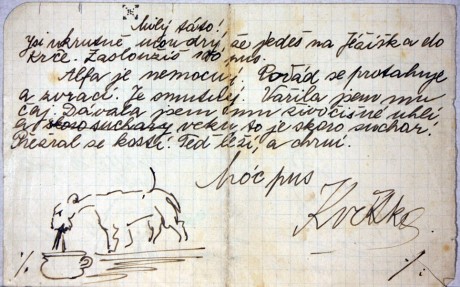 Milý táto!
Jsi ukrutně moudrý, že jedeš na Ježíška do
Krče. Zasloužíš pus.
Alfa je nemocný. Pořád se protahuje
a zvrací. Je smutný. Vařila jsem mu
čaj. Dávala jsem mu živočišné uhlí,
a skoro suchary veku to je skoro suchar!
Přežral se kostí. Teď leží, a chrní.
Móc pus